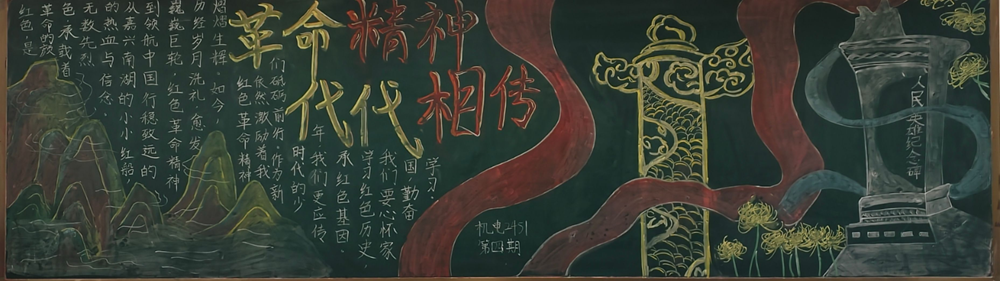 革命精神
代代相传
红色是
革命的
色，承载者
无数先烈
的热血与信念，
从嘉兴南湖的小小红船，
到领航中国行稳致远的
巍巍巨轮，红色革命精神
历经岁月洗礼，愈发
熠熠生辉。如今，
红色革命精神
依然激励着我
们砥砺前行。作为新
时代的少
年我们更应传
承红色基因，
学习红色历史，
我们要心怀家
国勤奋
学习．
机电2151
第四期
人民英雄纪念碑